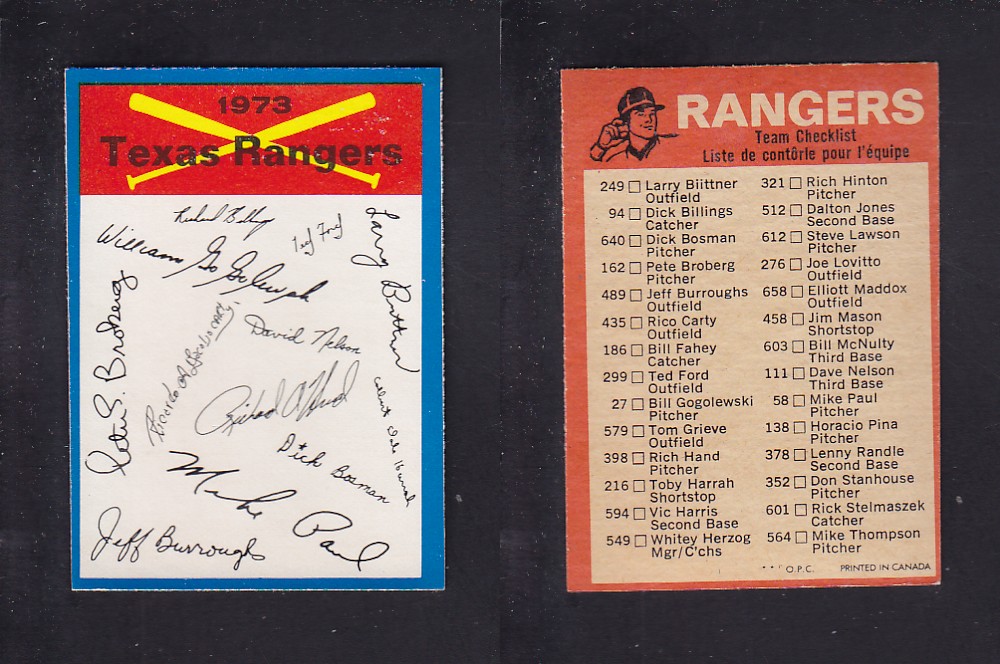 1973
Texas Rangers
Richard Billings
Ted Ford
Larry Biittner
William Gogolewski
Pete S. Broberg
David Nelson
Ricardo A Jacobo Carty
Richard A Hand
Colbert Dale Harrah
Dick Bosman
Mike Paul
Jeff Burroughs
RANGERS
Team Checklist
Liste de contôrle pour l'équipe
249 Larry Biittner
Outfield
94 Dick Billings
Catcher
640 Dick Bosman
Pitcher
162 Pete Broberg
Pitcher
489 Jeff Burroughs
Outfield
435 Rico Carty
Outfield
186 Bill Fahey
Catcher
299 Ted Ford
Outfield
27 Bill Gogolewski
Pitcher
579 Tom Grieve
Outfield
398 Rich Hand
Pitcher
216 Toby Harrah
Shortstop
594 Vic Harris
Second Base
549 Whitey Herzog
Mgr/C'chs
321 Rich Hinton
Pitcher
512 Dalton Jones
Second Base
612 Steve Lawson
Pitcher
276 Joe Lovitto
Outfield
658 Elliott Maddox
Outfield
458 Jim Mason
Shortstop
603 Bill McNulty
Third Base
111 Dave Nelson
Third Base
58 Mike Paul
Pitcher
138 Horacio Pina
Pitcher
378 Lenny Randle
Second Base
352 Don Stanhouse
Pitcher
601 Rick Stelmaszek
Catcher
564 Mike Thompson
Pitcher
***O.P.C. PRINTED IN CANADA